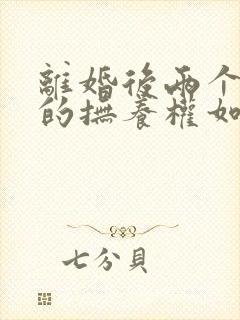 離婚後兩个
的撫養權如
七分貝